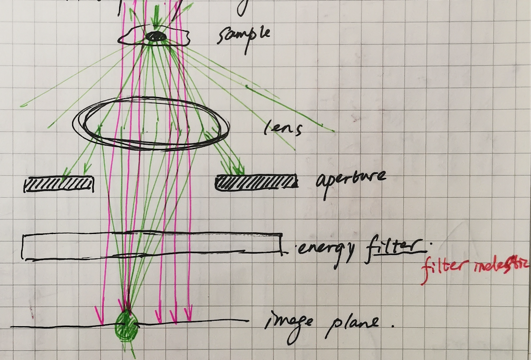 sample
lens
aperture
energy filter.
filter inelastic
image plane.